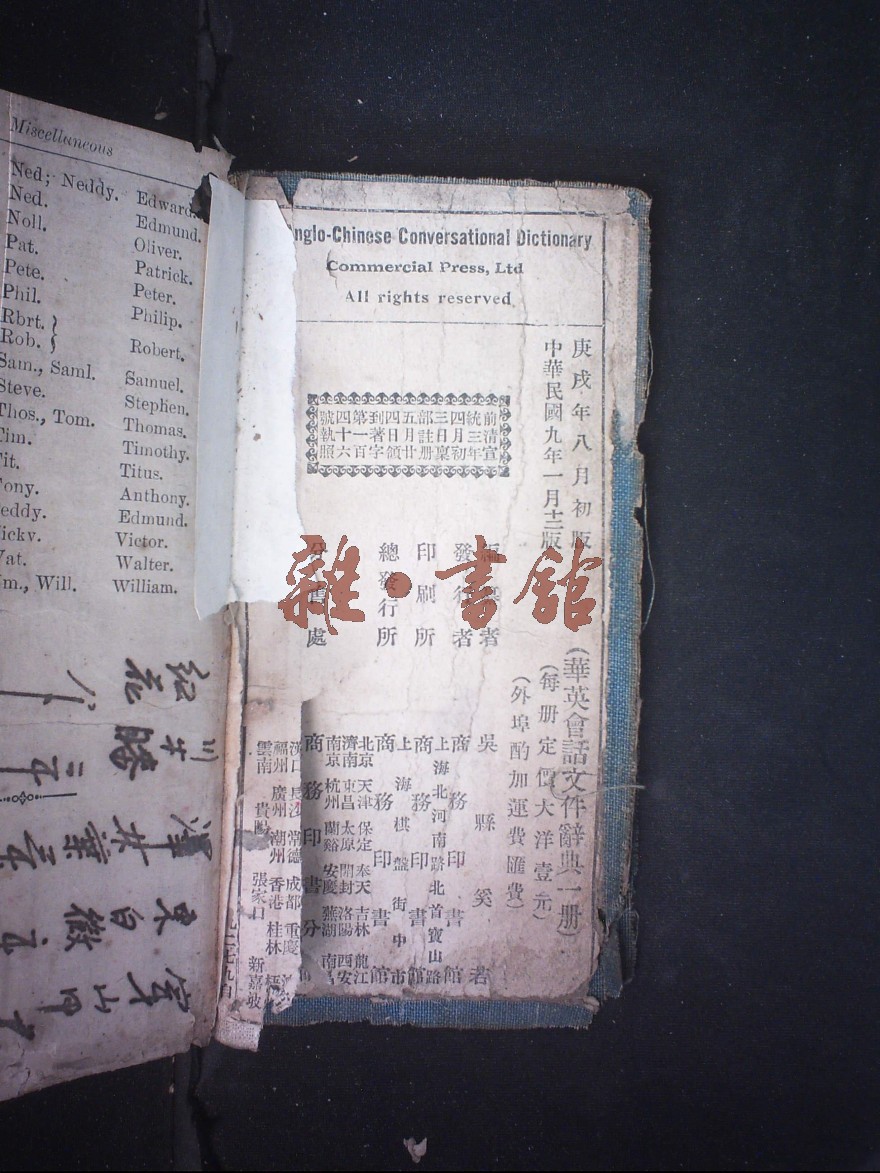 Miscellaneous
Ned; Neddy. Edward.
Ned. Edmund.
Noll. Oliver.
Pat. Patrick.
Pete. Peter.
Phil. Philip.
Rbrt. }
Rob. } Robert.
Sam., Saml. Samuel.
Steve. Stephen.
Thos., Tom. Thomas.
Tim. Timothy.
Tit. Titus.
ony. Anthony.
eddy. Edmund.
icky. Victor.
Wat. Walter.
m., Will. William.
nglo-Chinese Conversational Dictionary
Commercial Press, Ltd
All rights reserved
庚戌年八月初版
中華民國九年一月十二版
前清宣
統三年
四月初
三日稟
部註冊
五月廿
四日領
到著字
第一百
四十六
號執照
(華英會話文件辭典一册)
(每册定價大洋壹元)
(外埠酌加運費匯費)
者 吳縣奚若
發行者 商務印書館
印刷所 上海北河南路北首寶山路 商務印書館
總發行所 上海棋盤街中市 商務印書館
分售處 商務印書分
北京 天津 保定 奉天 吉林 龍江
濟南 東昌 太原 開封 洛陽 西安
南京 杭州 蘭谿 安慶 蕪湖 南昌
漢口 長沙 常德 成都 重慶
福州 廣州 潮州 香港 桂林
雲南 貴陽 張家口 新嘉坡
雜·書館